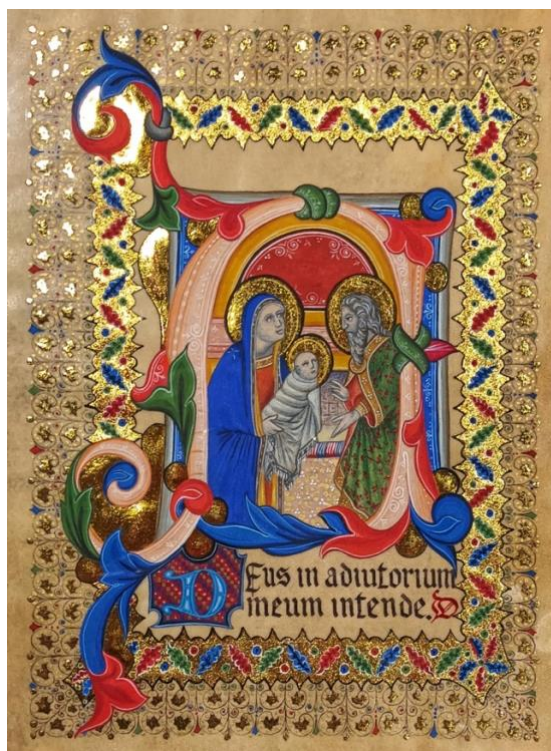 Deus in adiutorium
meum intende. D